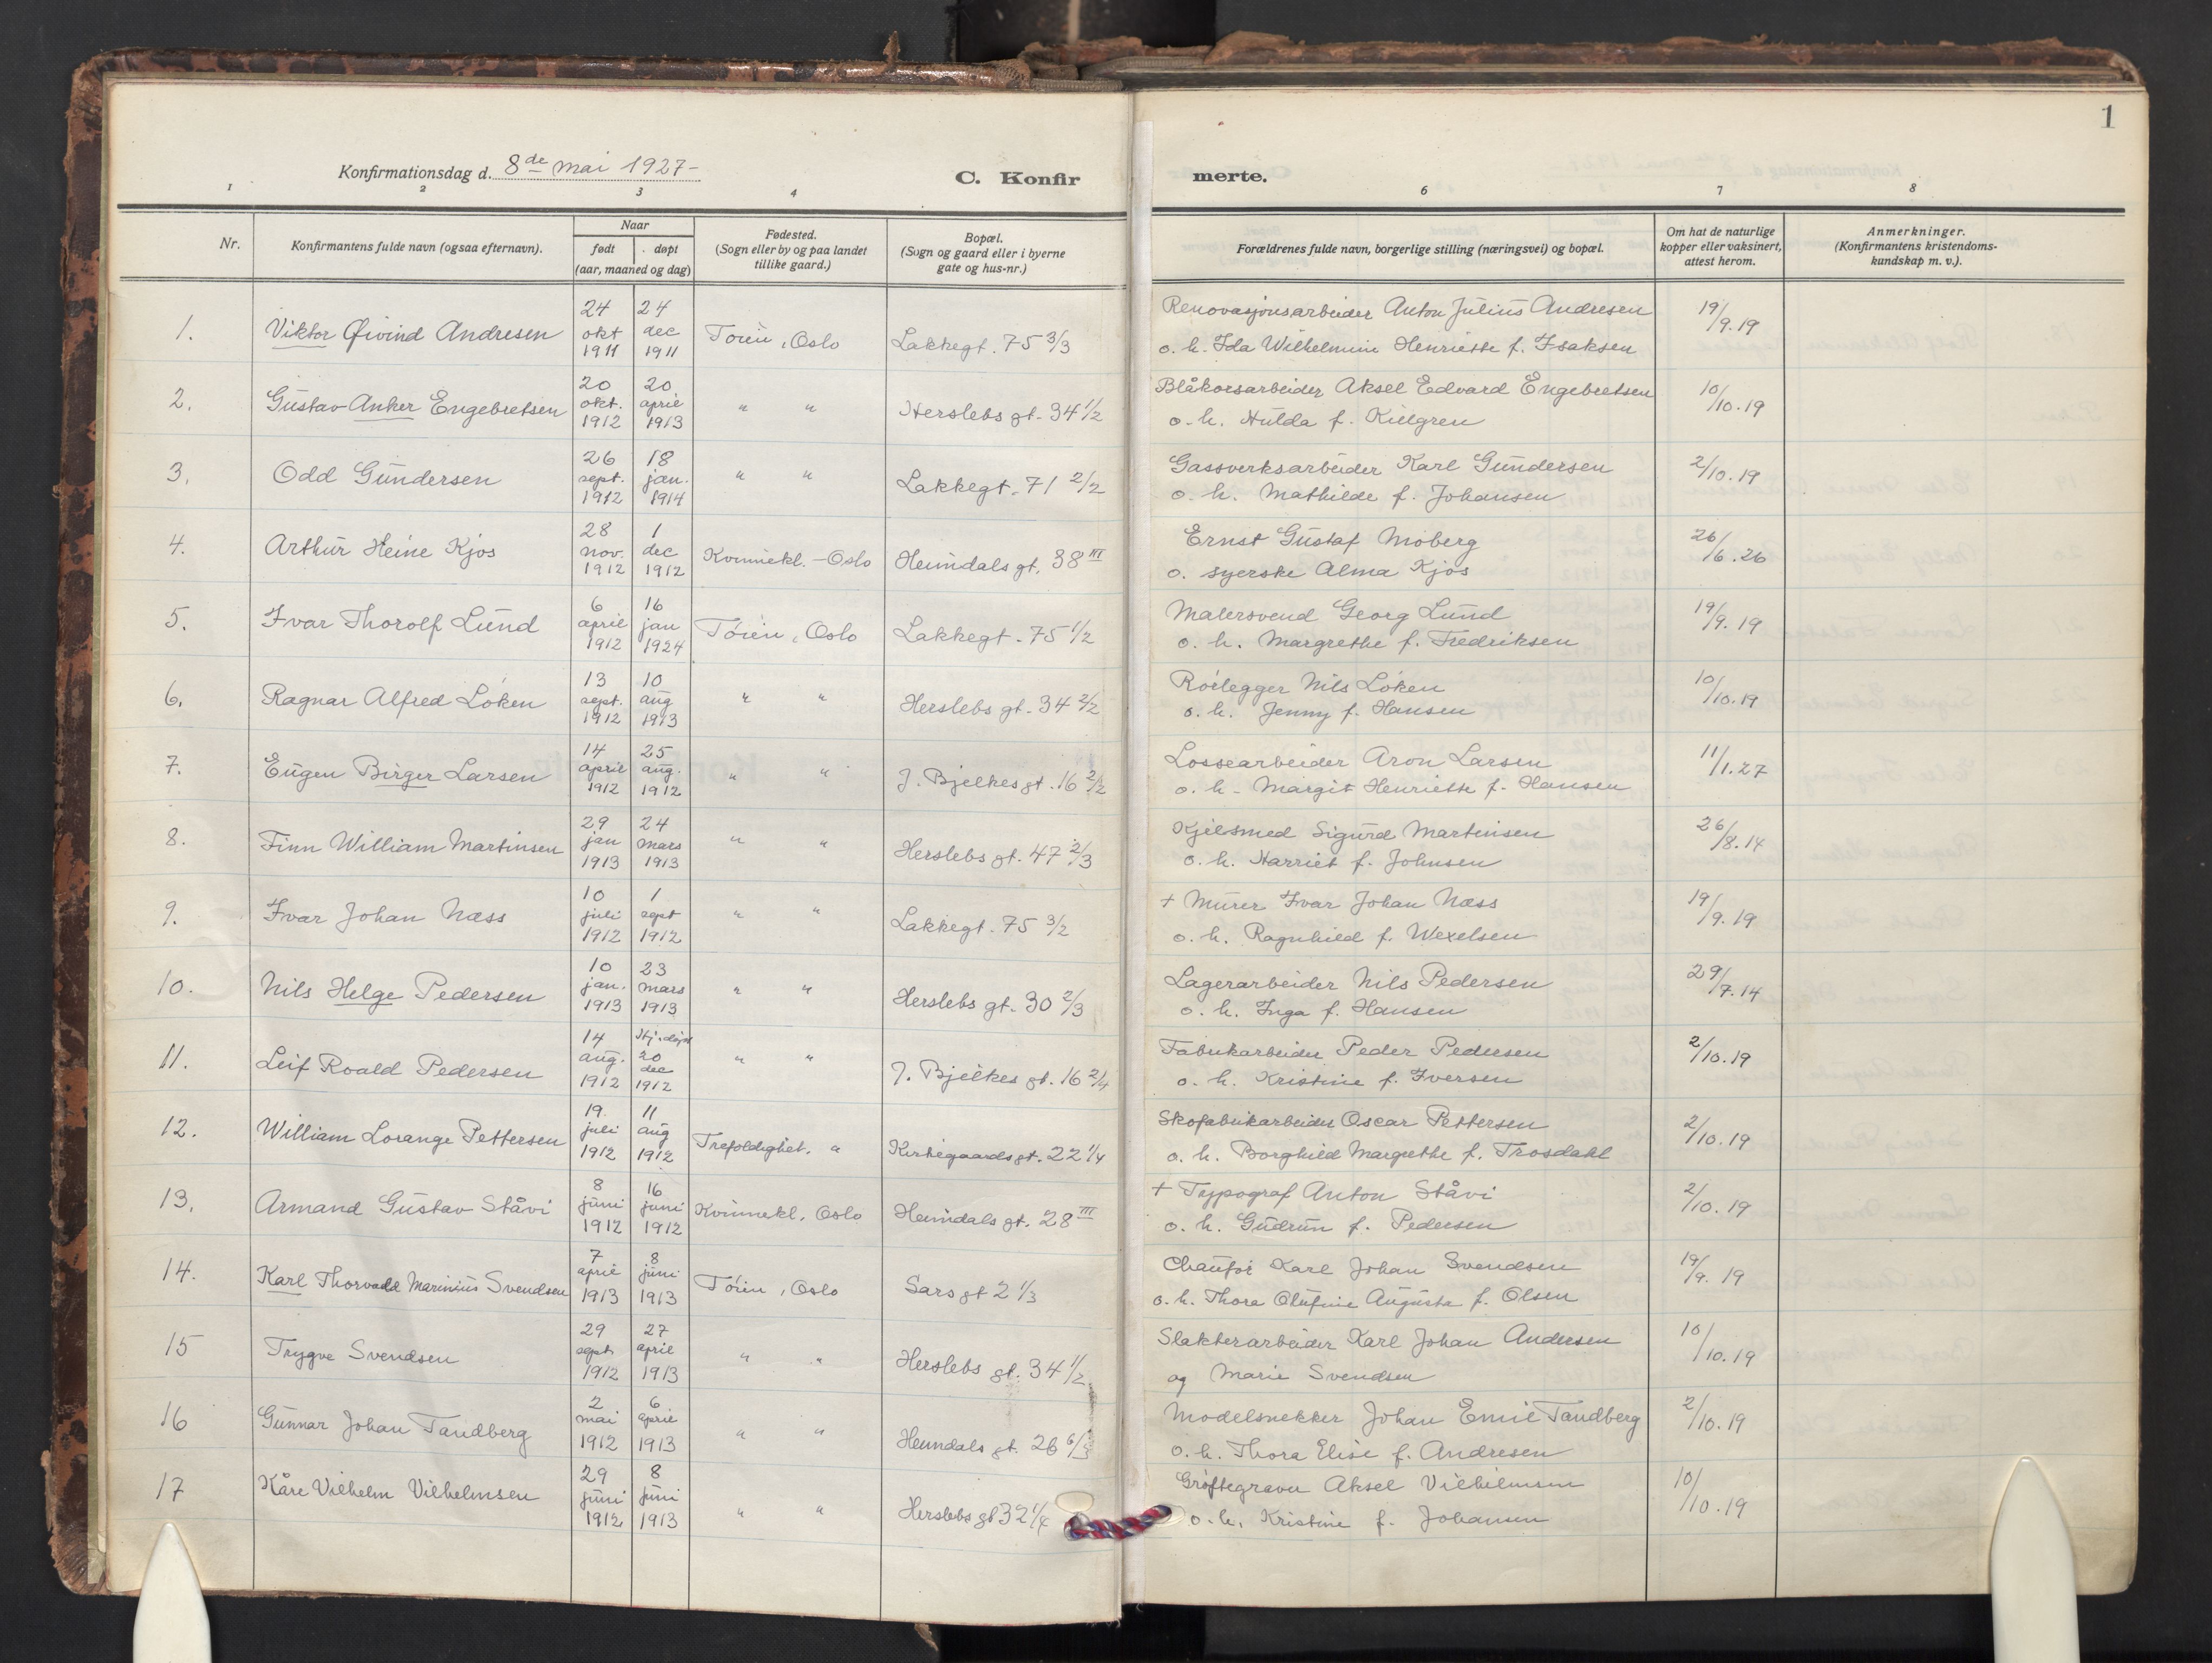 1
Konfirmationsdag d. 8de mai 1927-
C. Konfirmerte.
1 2 3 4 6 7 8
Nr.
Konfirmantens fulde navn (ogsaa efternavn).
Naar
født døpt
(aar, maaned og dag)
Fødested.
(Sogn eller by og paa landet
tillike gaard.)
Bopæl.
(Sogn og gaard eller i byerne
gate og hus-nr.)
Forældrenes fulde navn, borgerlige stilling (næringsvei) og bopæl.
Om hat de naturlige
kopper eller vaksinert,
attest herom.
Anmerkninger.
(Konfirmantens kristendoms-
kundskap m. v.).
1. Viktor Øivind Andresen 24 okt 1911 24 dec 1911 Tøien, Oslo Lakkegt. 75 3/3 Renovasjonsarbeider Anton Julius Andresen 19/9.19
o. h. Ida Wilhelmine Henriette f. Isaksen
2. Gustav Anker Engebretsen 20 okt. 1912 20 april 1913 " " Herslebs gt. 34 1/2 Blåkorsarbeider Aksel Edvard Engebretsen 10/10.19
o. h. Hulda f. Killgren
3. Odd Gundersen 26 sept. 1912 18 jan. 1914 " " Lakkegt. 71 2/2 Gassverksarbeider Karl Gundersen 2/10.19
o. h. Mathilde f. Johansen
4. Arthur Heine Kjos 28 nov. 1912 1 dec 1912 Kvinnekl. - Oslo Heimdals gt. 38 III Ernst Gustaf Moberg 26/6.26
o. syerske Alma Kjos
5. Ivar Thorolf Lund 6 april 1912 16 jan 1924 Tøien, Oslo Lakkegt. 75 1/2 Malersvend Georg Lund 19/9.19
o. h. Margrethe f. Fredriksen
6. Ragnar Alfred Løken 13 sept. 1912 10 aug 1913 " " Herslebs gt. 34 2/2 Rørlegger Nils Løken 10/10.19
o. h. Jenny f. Hansen
7. Eugen Birger Larsen 14 april 1912 25 aug. 1912 " " J. Bjelkes gt. 16 2/2 Lossearbeider Aron Larsen 11/1.27
o. h. Margit Henriette f. Hansen
8. Finn William Martinsen 29 jan 1913 24 mars 1913 " " Herslebs gt. 47 2/3 Kjelsmed Sigurd Martinsen 26/8.14
o. h. Harriet f. Johnsen
9. Ivar Johan Næss 10 juli 1912 1 sept 1912 " " Lakkegt. 75 3/2 + Murer Ivar Johan Næss 19/9.19
o. h. Ragnhild f. Wexelsen
10. Nils Helge Pedersen 10 jan. 1913 23 mars 1913 " " Herslebs gt. 30 2/3 Lagerarbeider Nils Pedersen 29/7.14
o. h. Inga f. Hansen
11. Leif Roald Pedersen 14 aug. 1912 Hj. døpt 20 dec 1912 " " J. Bjelkes gt. 16 2/4 Fabrikarbeider Peder Pedersen 2/10.19
o. h. Kristine f. Iversen
12. William Lorange Pettersen 19. juli 1912 11 aug 1912 Trefoldighet. " Kirkegaards gt. 22 1/4 Skofabrikarbeider Oscar Pettersen 2/10.19
o. h. Borghild Margrethe f. Trosdahl
13. Armand Gustav Ståvi 8 juni 1912 16 juni 1912 Kvinnekl, Oslo Heimdals gt. 28 III + Typograf Anton Ståvi 2/10.19
o. h. Gudrun f. Pedersen
14. Karl Thorvald Marinius Svendsen 7 april 1913 8 juni 1913 Tøien, Oslo Sars gt 2 1/3 Chaufør Karl Johan Svendsen 19/9.19
o. h. Thora Olufine Augusta f. Olsen
15 Trygve Svendsen 29 sept 1912 27 april 1913 " " Herslebs gt. 34 1/2 Slakterarbeider Karl Johan Andersen 10/10.19
og Marie Svendsen
16 Gunnar Johan Tandberg 2 mai 1912 6 april 1913 " " Heimdals gt. 26 6/3 Modelsnekker Johan Emil Tandberg 2/10.19
o. h. Thora Elise f. Andresen
17 Kåre Vilhelm Vilhelmsen 29 juni 1912 8 juni 1913 " " Herslebs gt 32 1/4 Grøftegraver Aksel Vilhelmsen 10/10.19
o. h. Kristine f. Johansen